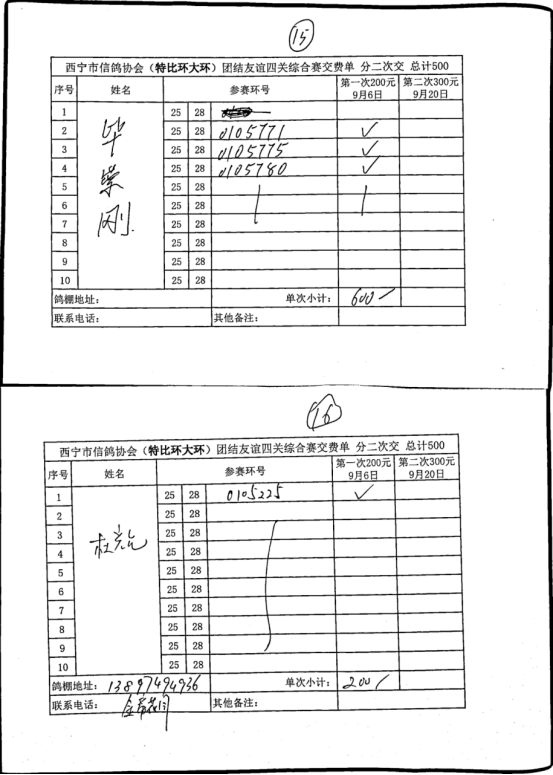 15
西宁市信鸽协会（特比环大环）团结友谊四关综合赛交费单 分二次交 总计500
序号 姓名 参赛环号 第一次200元 9月6日 第二次300元 9月20日
1 25 28
2 25 28 0105771 ✓
3 25 28 0105775 ✓
4 25 28 0105780 ✓
5 25 28
6 25 28
7 25 28
8 25 28
9 25 28
10 25 28
毕崇刚
鸽棚地址： 单次小计： 600
联系电话： 其他备注：
16
西宁市信鸽协会（特比环大环）团结友谊四关综合赛交费单 分二次交 总计500
序号 姓名 参赛环号 第一次200元 9月6日 第二次300元 9月20日
1 25 28 0105225 ✓
2 25 28
3 25 28
4 25 28
5 25 28
6 25 28
7 25 28
8 25 28
9 25 28
10 25 28
鸽棚地址： 13897494936 单次小计： 200
联系电话： 其他备注：